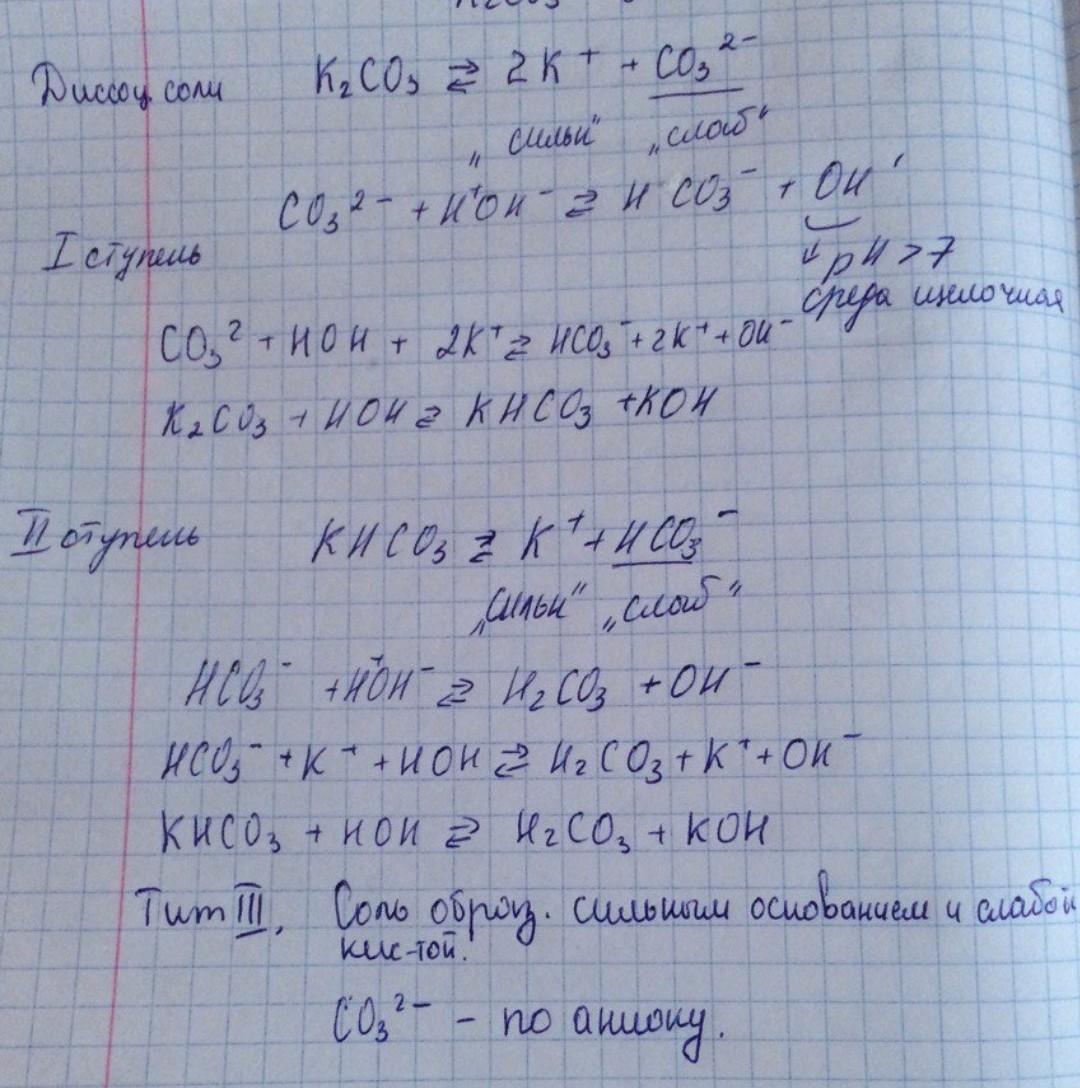 Диссоц. соли K₂CO₃ ⇄ 2K⁺ + CO₃²⁻
„сильн“ „слаб“
CO₃²⁻ + H⁺OH⁻ ⇄ HCO₃⁻ + OH'
I ступень ↓ pH > 7
среда щелочная
CO₃² + HOH + 2K⁺ ⇄ HCO₃⁻ + 2K⁺ + OH⁻
K₂CO₃ + HOH ⇄ KHCO₃ + KOH
II ступень KHCO₃ ⇄ K⁺ + HCO₃⁻
„сильн“ „слаб“
HCO₃⁻ + H⁺OH⁻ ⇄ H₂CO₃ + OH⁻
HCO₃⁻ + K⁺ + HOH ⇄ H₂CO₃ + K⁺ + OH⁻
KHCO₃ + HOH ⇄ H₂CO₃ + KOH
Тип III. Соль образ. сильным основанием и слабой
кис-той.
CO₃²⁻ – по аниону.